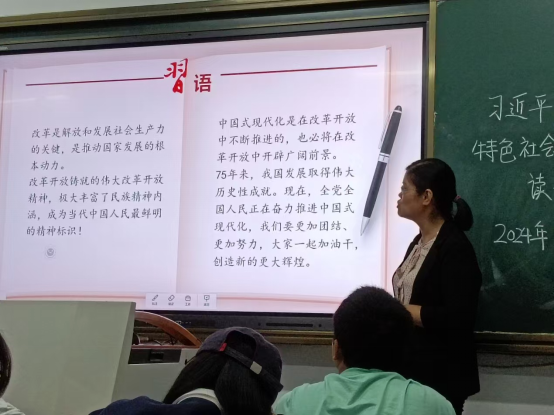 習语
改革是解放和发展社会生产力
的关键，是推动国家发展的根
本动力。
改革开放铸就的伟大改革开放
精神，极大丰富了民族精神内
涵，成为当代中国人民最鲜明
的精神标识！
中国式现代化是在改革开放
中不断推进的，也必将在改
革开放中开辟广阔前景。
75年来，我国发展取得伟大
历史性成就。现在，全党全
国人民正在奋力推进中国式
现代化，我们要更加团结、
更加努力，大家一起加油干，
创造新的更大辉煌。
习近平
特色社会
读
2024年